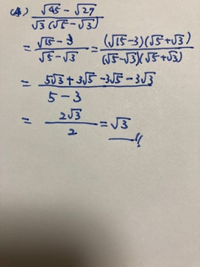 (4) (√45 - √27) / (√3(√5 - √3))
= (√15 - 3) / (√5 - √3) = ((√15 - 3)(√5 + √3)) / ((√5 - √3)(√5 + √3))
= (5√3 + 3√5 - 3√5 - 3√3) / (5 - 3)
= 2√3 / 2 = √3